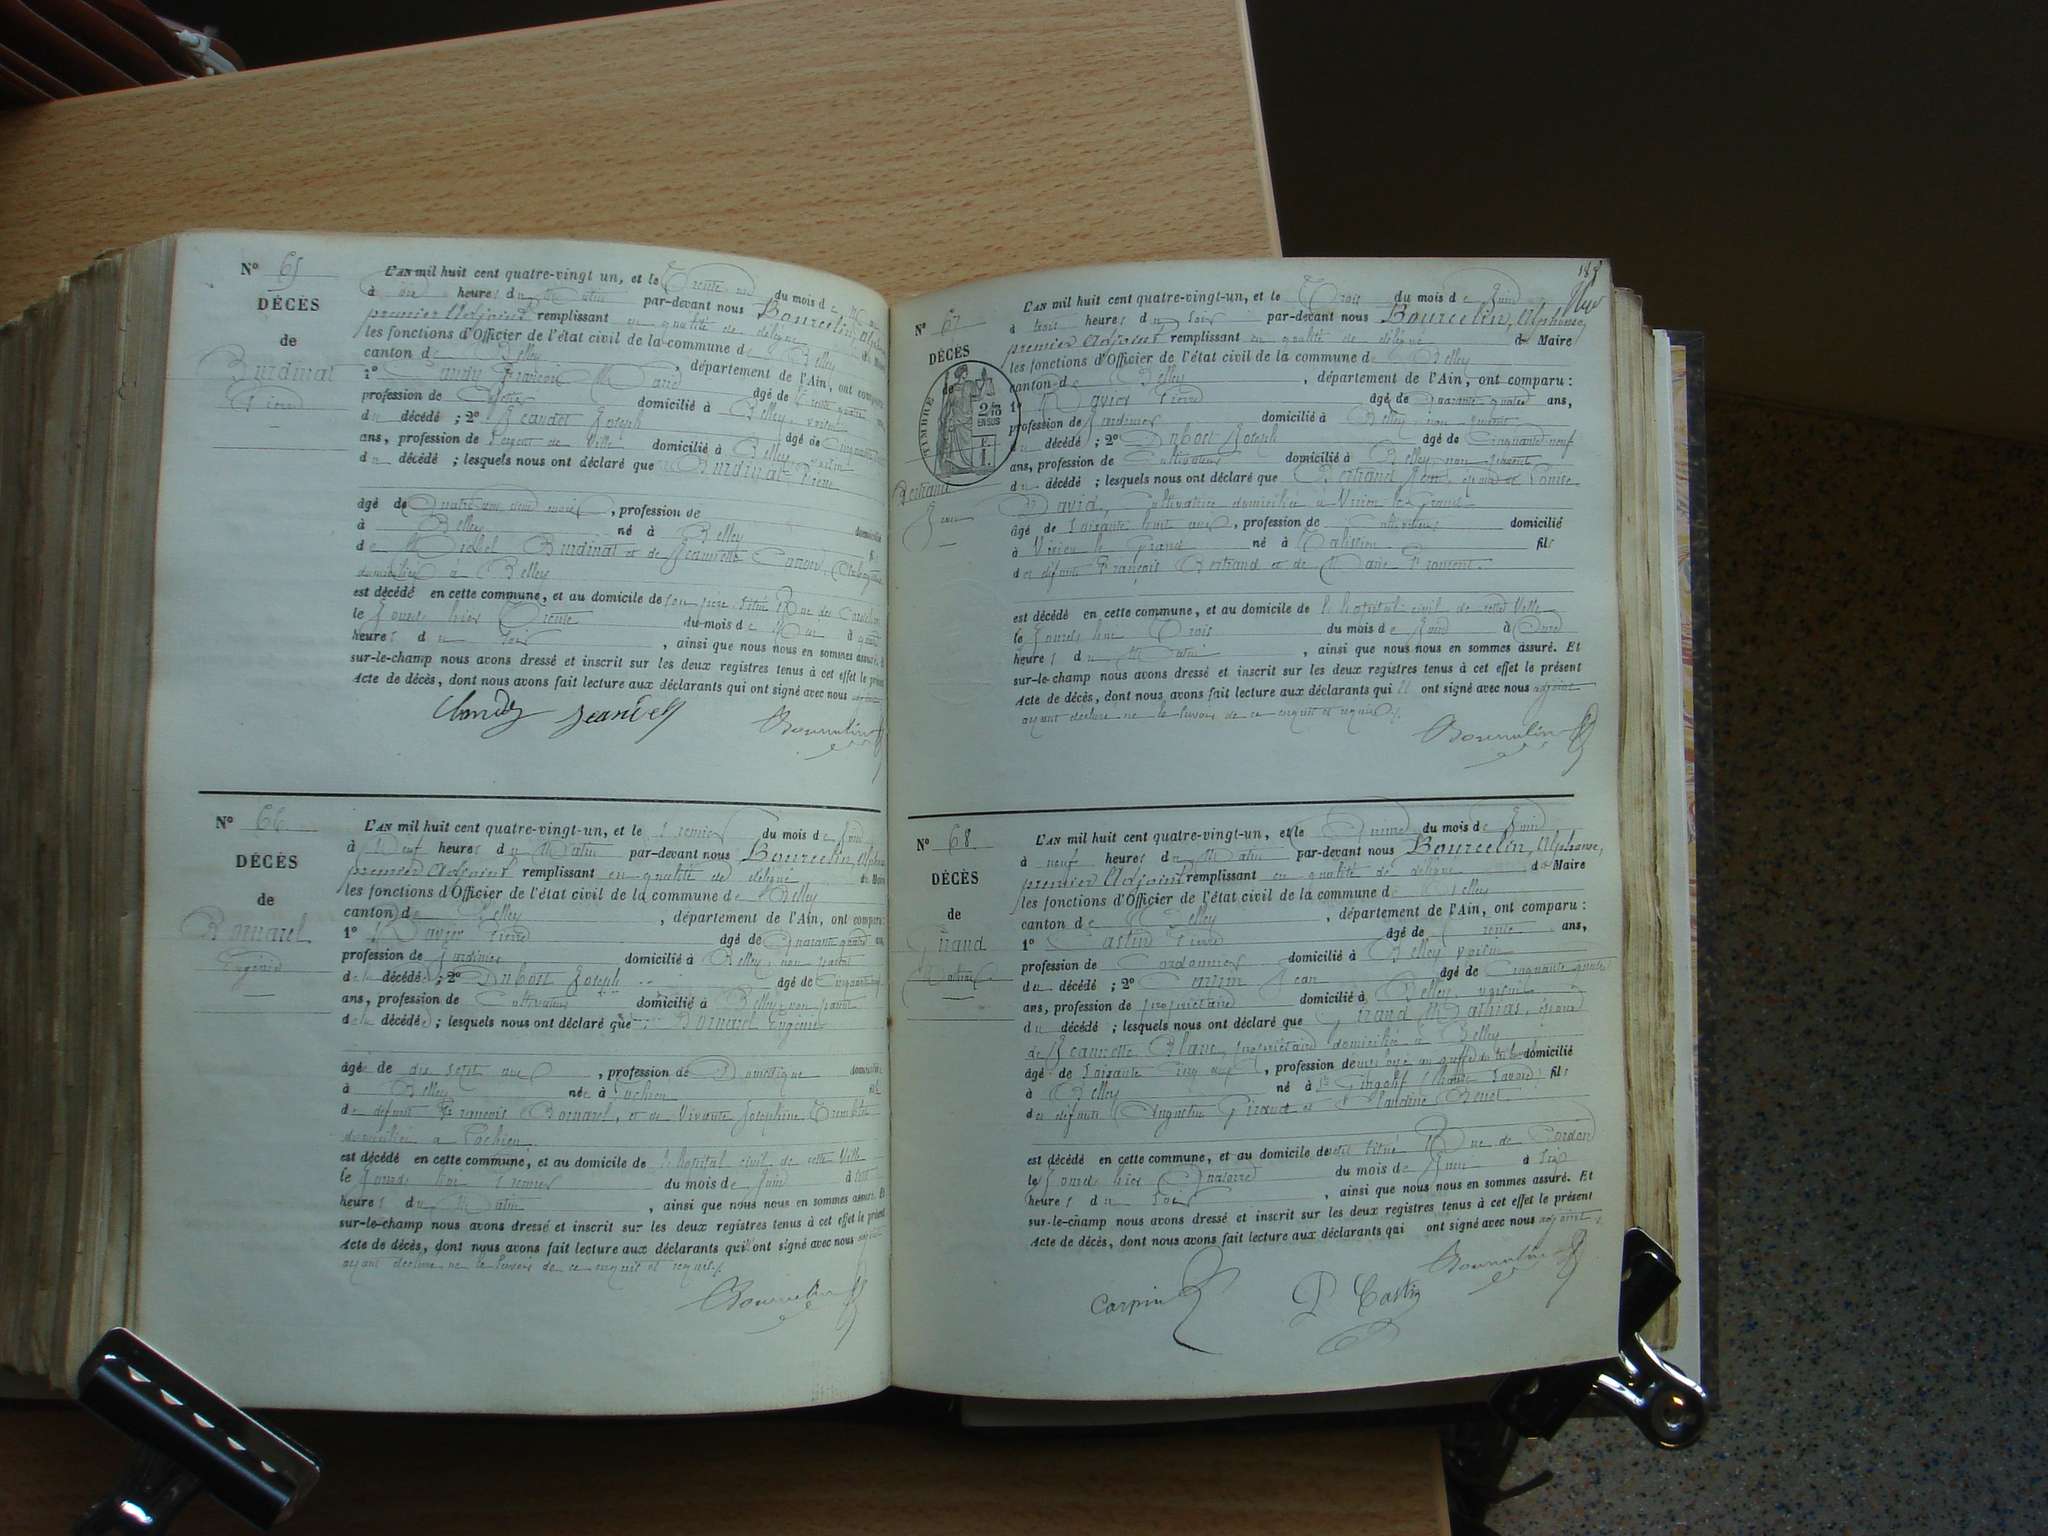 N° 65
DÉCÈS
de
Burdinat
Pierre
L'AN mil huit cent quatre-vingt un, et le Trente un du mois de Mai
à onze heures du Matin par-devant nous Bourcelin, Alphonse
premier Adjoint remplissant en qualité de délégué du Maire
les fonctions d'Officier de l'état civil de la commune de Belley
canton de Belley, département de l'Ain, ont comparu:
1° François Marie âgé de trente quatre
profession de domicilié à Belley, voisin
du décédé; 2° Jeandet Joseph âgé de cinquante
ans, profession de Sergent de Ville domicilié à Belley
du décédé; lesquels nous ont déclaré que Burdinat Pierre
âgé de Quatre ans, deux mois, profession de domicilié
à Belley né à Belley
de Michel Burdinat et de Jeannette
domiciliés à Belley
est décédé en cette commune, et au domicile de son père, situé Rue des
le Jourd'hier Trente du mois de Mai à quatre
heures du soir, ainsi que nous nous en sommes assuré. Et
sur-le-champ nous avons dressé et inscrit sur les deux registres tenus à cet effet le présent
Acte de décès, dont nous avons fait lecture aux déclarants qui ont signé avec nous adjoint
Jeandet
Bourcelin
N° 66
DÉCÈS
de
Bornarel
Eugénie
L'AN mil huit cent quatre-vingt-un, et le Premier du mois de Juin
à Neuf heures du Matin par-devant nous Bourcelin, Alphonse
premier Adjoint remplissant en qualité de délégué du Maire
les fonctions d'Officier de l'état civil de la commune de Belley
canton de Belley, département de l'Ain, ont comparu:
1° Pierre âgé de Quarante quatre ans,
profession de Jardinier domicilié à Belley, non parent
de la décédée; 2° Dubost Joseph âgé de Cinquante neuf
ans, profession de Cultivateur domicilié à Belley, non parent
de la décédée; lesquels nous ont déclaré que Bornarel Eugénie
âgée de dix sept ans, profession de Domestique domiciliée
à Belley née à Lochieu fille
de défunt François Bornarel, et de Vivante Joséphine
domiciliée à Lochieu
est décédé en cette commune, et au domicile de l'hopital civil de cette Ville
le Jourd'hui Premier du mois de Juin à
heures du Matin, ainsi que nous nous en sommes assuré. Et
sur-le-champ nous avons dressé et inscrit sur les deux registres tenus à cet effet le présent
Acte de décès, dont nous avons fait lecture aux déclarants qui n'ont signé avec nous adjoint
ayant déclaré ne le savoir de ce enquis et requis.
Bourcelin
183
N° 67
DÉCÈS
de
TIMBRE
2/10
EN SUS
F.
1.
Bertrand
Jean
L'AN mil huit cent quatre-vingt-un, et le Trois du mois de Juin
à trois heures du soir par-devant nous Bourcelin, Alphonse,
premier Adjoint remplissant en qualité de délégué du Maire
les fonctions d'Officier de l'état civil de la commune de Belley
canton de Belley, département de l'Ain, ont comparu:
1° Pierre âgé de Quarante quatre ans,
profession de Jardinier domicilié à Belley, non parent
du décédé; 2° Dubost Joseph âgé de Cinquante neuf
ans, profession de Cultivateur domicilié à Belley, non parent
du décédé; lesquels nous ont déclaré que Bertrand Jean, époux de Louise
David, Cultivatrice domiciliée à Virieu le Grand
âgé de soixante huit ans, profession de Cultivateur domicilié
à Virieu le Grand né à Talissieu fils
des défunts François Bertrand et de Marie Froment.
est décédé en cette commune, et au domicile de l'hopital civil de cette Ville
le Jourd'hui Trois du mois de Juin à Onze
heures du Matin, ainsi que nous nous en sommes assuré. Et
sur-le-champ nous avons dressé et inscrit sur les deux registres tenus à cet effet le présent
Acte de décès, dont nous avons fait lecture aux déclarants qui n'ont signé avec nous adjoint
ayant déclaré ne le savoir de ce enquis et requis.
Bourcelin
N° 68
DÉCÈS
de
Mathias
L'AN mil huit cent quatre-vingt-un, et le Quinze du mois de Juin
à neuf heures du Matin par-devant nous Bourcelin, Alphonse,
premier Adjoint remplissant en qualité de délégué du Maire
les fonctions d'Officier de l'état civil de la commune de Belley
canton de Belley, département de l'Ain, ont comparu:
1° Castin Pierre âgé de Trente ans,
profession de Cordonnier domicilié à Belley voisin
du décédé; 2° Carpin Jean âgé de Cinquante quatre
ans, profession de propriétaire domicilié à Belley, voisin
du décédé; lesquels nous ont déclaré que Mathias, époux
de Jeannette Blanc, propriétaire domiciliée à Belley
âgé de soixante cinq ans, profession de domicilié
à Belley né à St Gingolf (Haute Savoie) fils
des défunts et Claudine Benet
est décédé en cette commune, et au domicile de situé Rue de
le Jourd'hier Quatorze du mois de Juin à six
heures du soir, ainsi que nous nous en sommes assuré. Et
sur-le-champ nous avons dressé et inscrit sur les deux registres tenus à cet effet le présent
Acte de décès, dont nous avons fait lecture aux déclarants qui ont signé avec nous adjoint.
Carpin P Castin Bourcelin